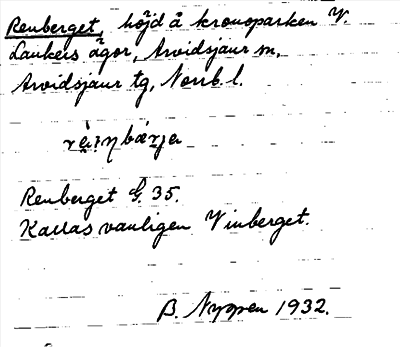 Renberget, höjd å kronoparken V.
Laukers ägor, Arvidsjaur sn,
Arvidsjaur tg, Norrb. l.
Renberget G. 35.
Kallas vanligen Vinberget.
B. Nyppen 1932.